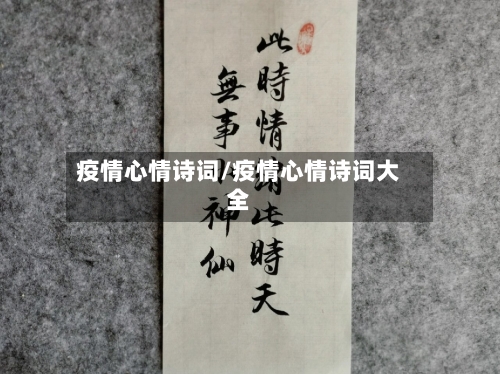 此時情緒此時天
無事小神仙
疫情心情诗词/疫情心情诗词大
全